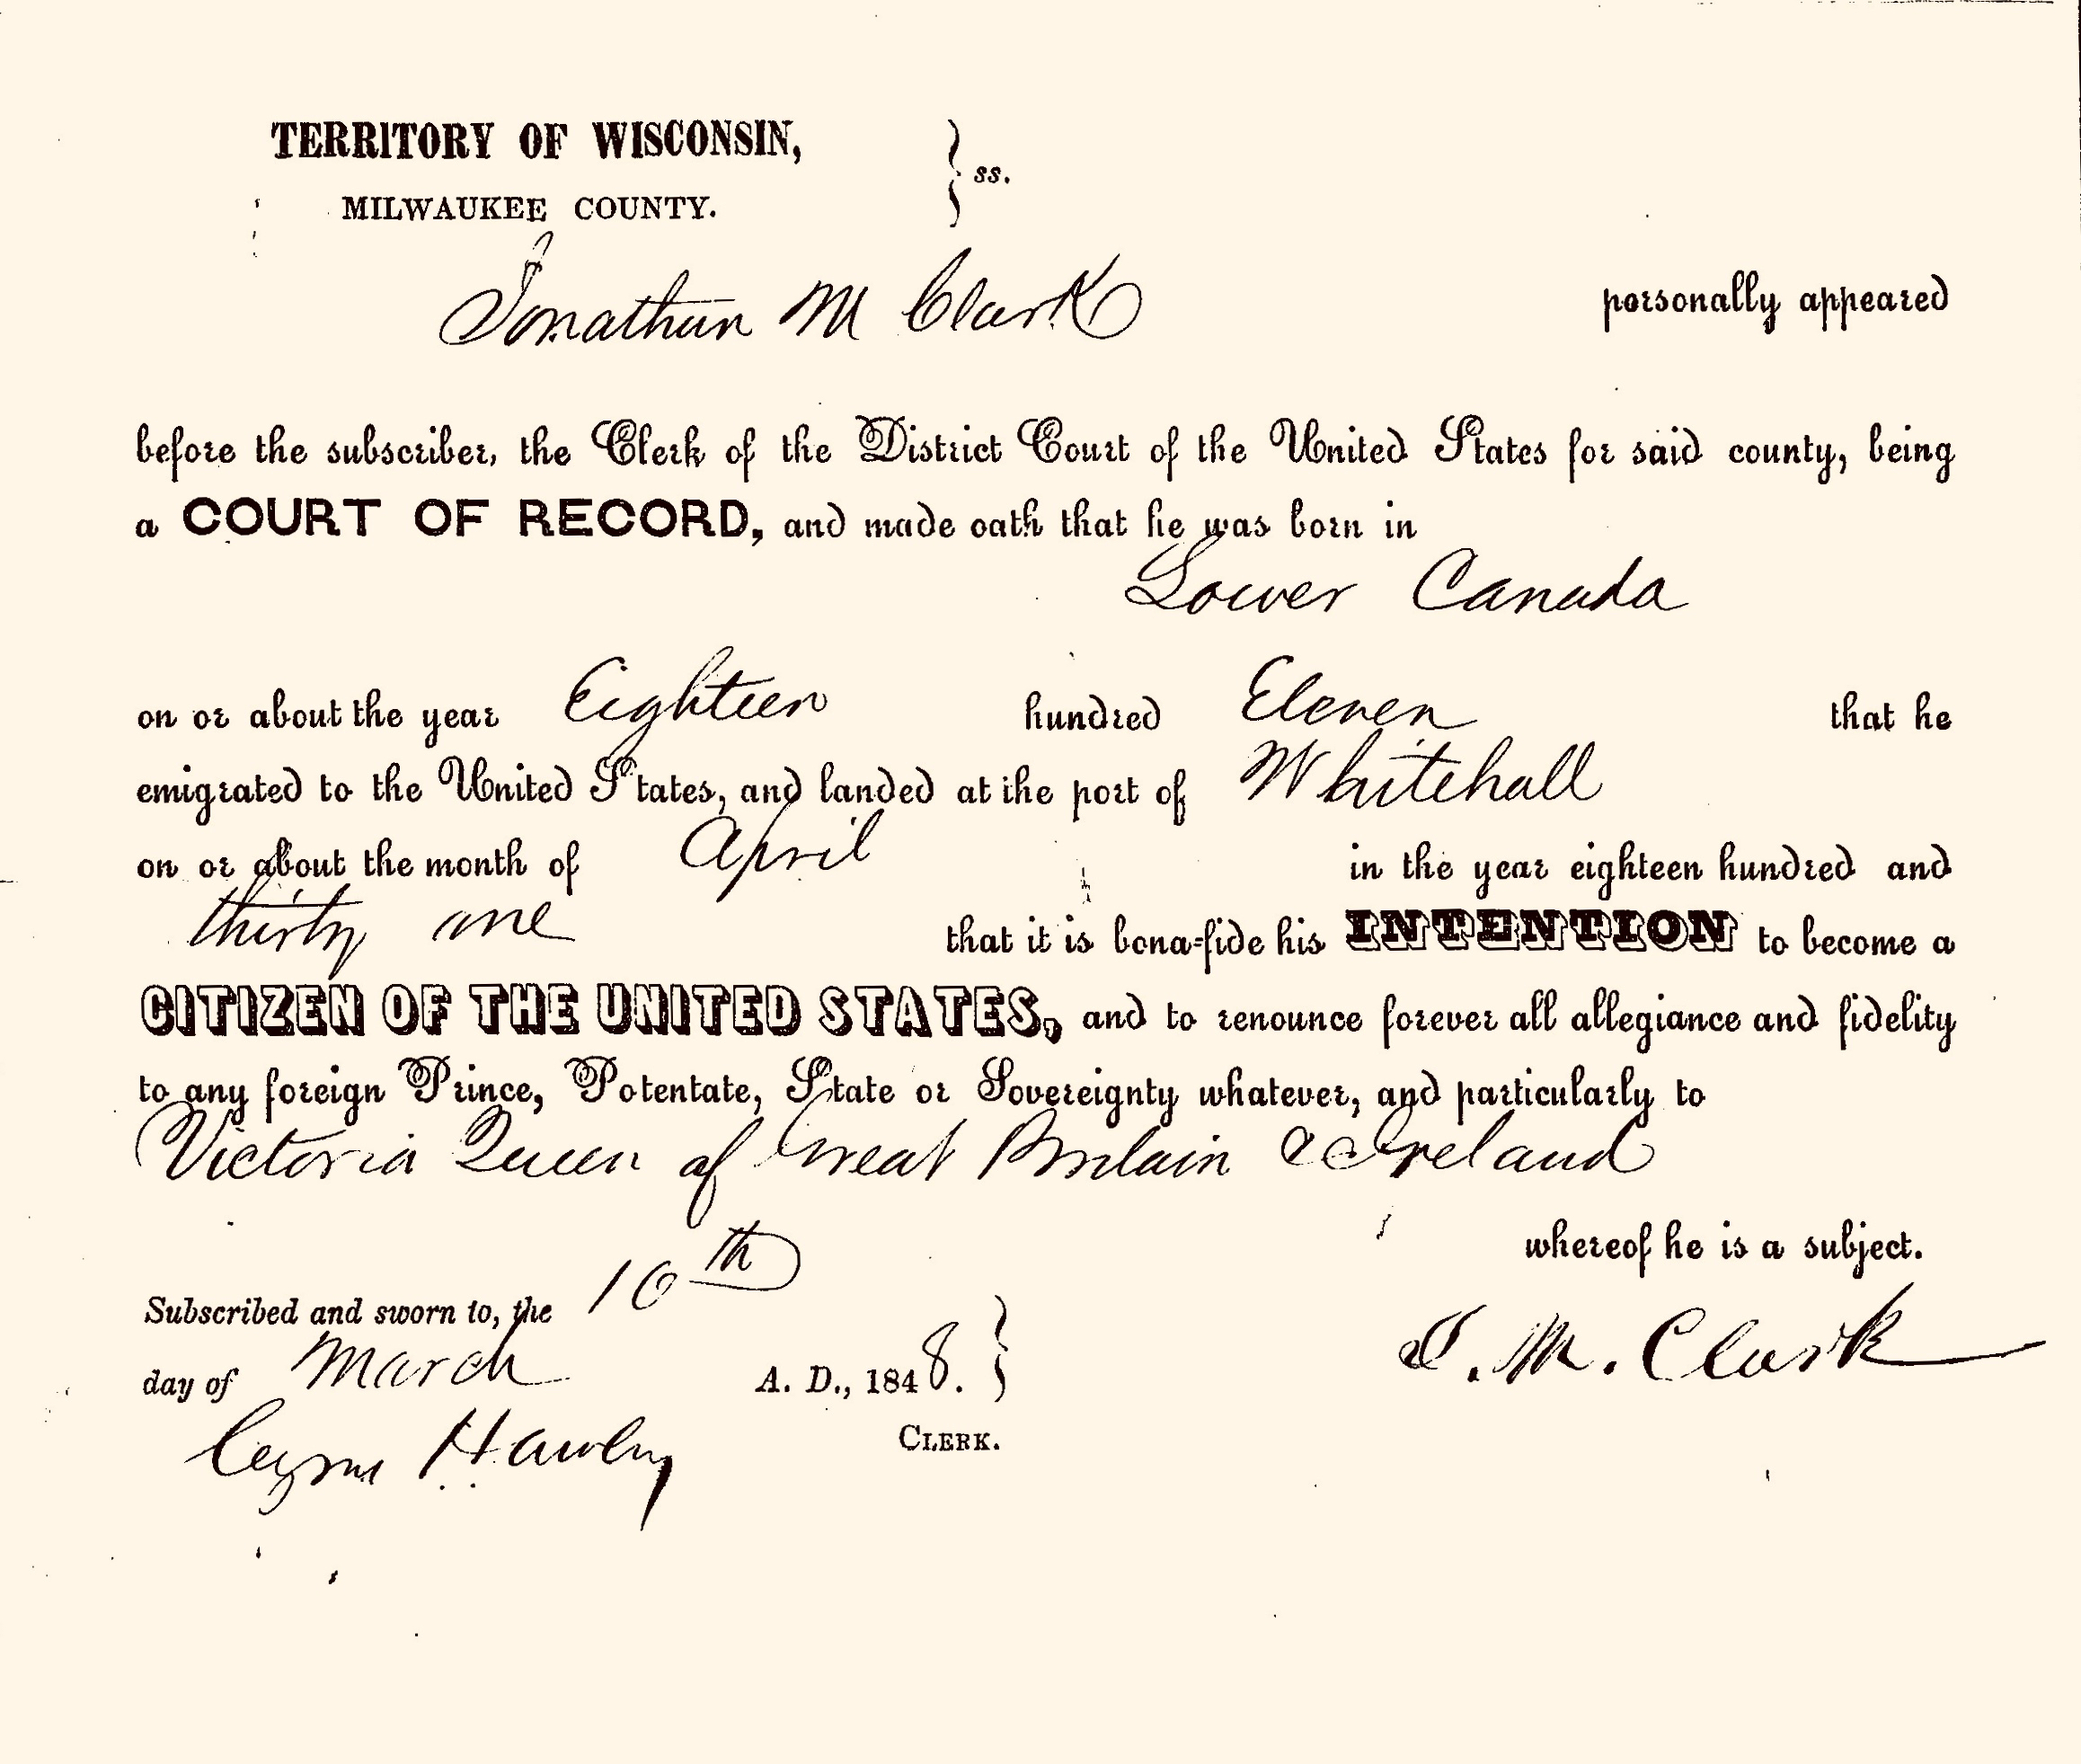 TERRITORY OF WISCONSIN,
MILWAUKEE COUNTY. } ss.
Jonathan M Clark personally appeared
before the subscriber, the Clerk of the District Court of the United States for said county, being
a COURT OF RECORD, and made oath that he was born in
Lower Canada
on or about the year Eighteen hundred Eleven that he
emigrated to the United States, and landed at the port of Whitehall
on or about the month of April in the year eighteen hundred and
thirty one that it is bona-fide his INTENTION to become a
CITIZEN OF THE UNITED STATES, and to renounce forever all allegiance and fidelity
to any foreign Prince, Potentate, State or Sovereignty whatever, and particularly to
Victoria Queen of Great Britain & Ireland
whereof he is a subject.
Subscribed and sworn to, the 10th
day of March A. D., 1848. }
J. M. Clark
Cyrus Hawley CLERK.